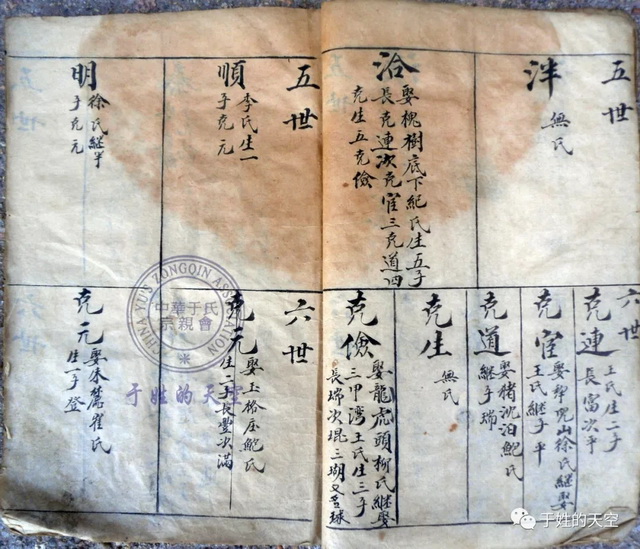 五世
泮
無氏
洽
娶槐樹底下紀氏生五子
長克連次克宦三克道四
克生五克儉
克連
王氏生二子
長富次平
克宦
娶山徐氏継娶
王氏継子平
克道
娶猪沈泊鮑氏
継子瑞
克生
無氏
克儉
娶龍虎頭柳氏継娶
三甲湾王氏生三子
長瑞次琨三瑚又名球
五世
順
李氏生一
子克元
明
徐氏継半
子克元
六世
克元
娶玉格庄鮑氏
生二子長豊次滿
克元
娶朱崔氏
生一子登
CHINA YU'S ZONGQIN ASSOCIATION
中華于氏
宗親會
于姓的天空
于姓的天空